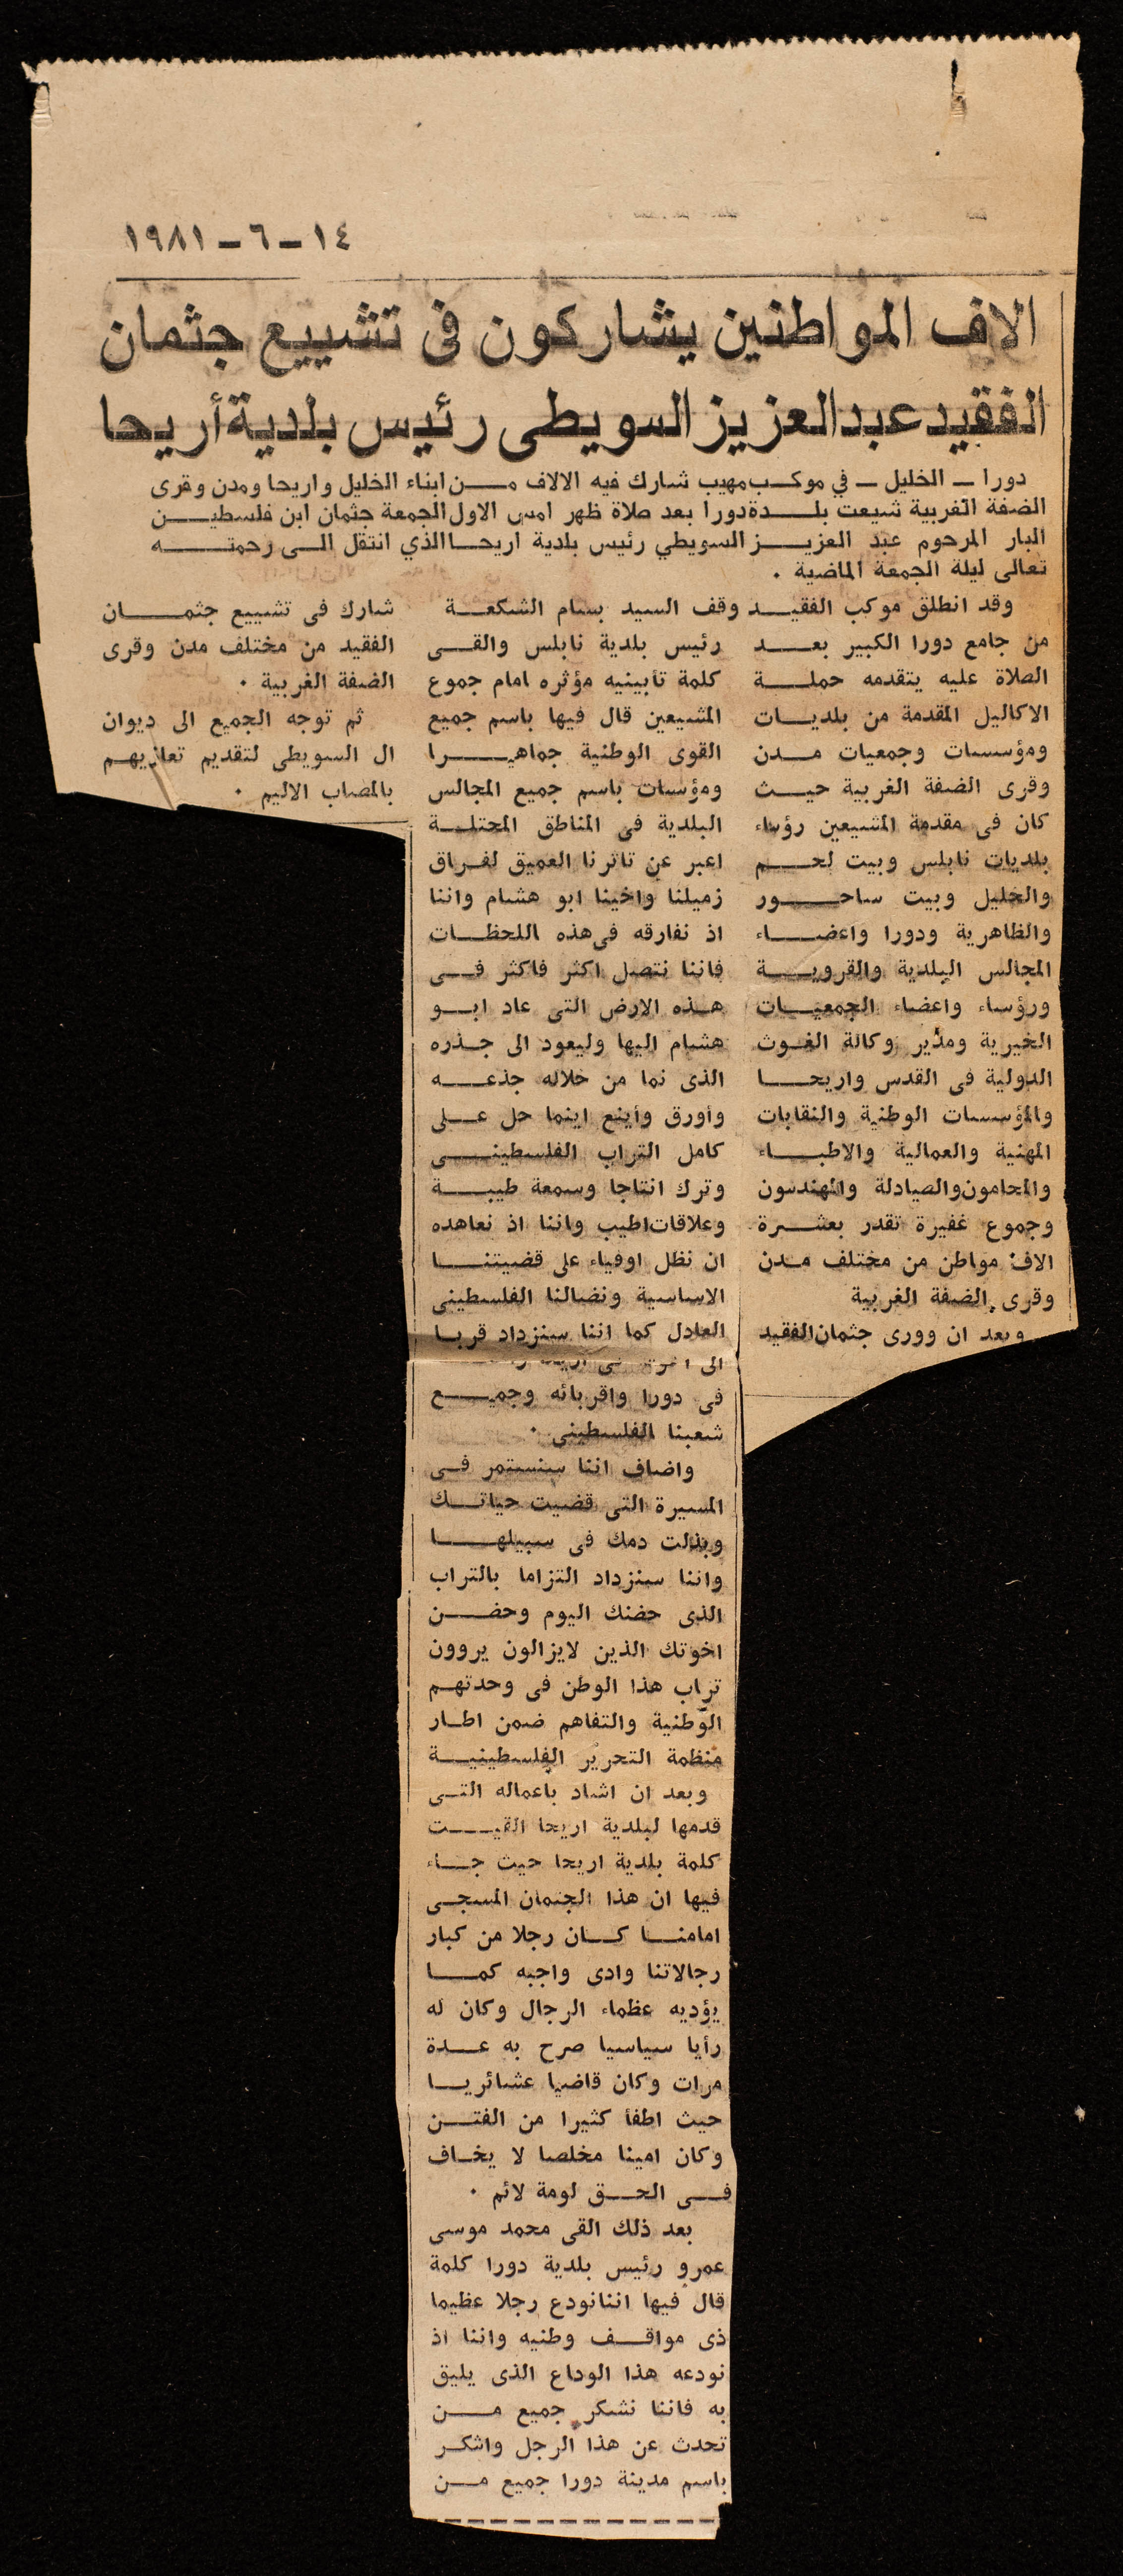 ١٤ - ٦ - ١٩٨١
الاف المواطنين يشاركون فى تشييع جثمان
الفقيد عبد العزيز السويطى رئيس بلدية أريحا
دورا ــ الخليل ــ في موكب مهيب شارك فيه الالاف من ابناء الخليل واريحا ومدن وقرى
الضفة الغربية شيعت بلدة دورا بعد صلاة ظهر امس الاول الجمعة جثمان ابن فلسطين
البار المرحوم عبد العزيز السويطي رئيس بلدية اريحا الذي انتقل الى رحمته
تعالى ليلة الجمعة الماضية .
وقد انطلق موكب الفقيد
من جامع دورا الكبير بعد
الصلاة عليه يتقدمه حملة
الاكاليل المقدمة من بلديات
ومؤسسات وجمعيات مدن
وقرى الضفة الغربية حيث
كان فى مقدمة المشيعين رؤساء
بلديات نابلس وبيت لحم
والخليل وبيت ساحور
والظاهرية ودورا واعضاء
المجالس البلدية والقروية
ورؤساء واعضاء الجمعيات
الخيرية ومدير وكالة الغوث
الدولية فى القدس واريحا
والمؤسسات الوطنية والنقابات
المهنية والعمالية والاطباء
والمحامون والصيادلة والمهندسون
وجموع غفيرة تقدر بعشرة
الاف مواطن من مختلف مدن
وقرى الضفة الغربية
وبعد ان وورى جثمان الفقيد
وقف السيد بسام الشكعة
رئيس بلدية نابلس والقى
كلمة تأبينيه مؤثره امام جموع
المشيعين قال فيها باسم جميع
القوى الوطنية جماهيرا
ومؤسسات باسم جميع المجالس
البلدية فى المناطق المحتلة
اعبر عن تاثرنا العميق لفراق
زميلنا واخينا ابو هشام واننا
اذ نفارقه فى هذه اللحظات
فاننا نتصل اكثر فاكثر فى
هذه الارض التى عاد ابو
هشام اليها وليعود الى جذره
الذى نما من خلاله جذعه
وأورق وأينع اينما حل على
كامل التراب الفلسطينى
وترك انتاجا وسمعة طيبة
وعلاقات اطيب واننا اذ نعاهده
ان نظل اوفياء على قضيتنا
الاساسية ونضالنا الفلسطينى
العادل كما اننا سنزداد قربا
الى
فى دورا واقربائه وجميع
شعبنا الفلسطينى .
واضاف اننا سنستمر فى
المسيرة التى قضيت حياتك
وبذلت دمك فى سبيلها
واننا سنزداد التزاما بالتراب
الذى حضنك اليوم وحضن
اخوتك الذين لايزالون يروون
تراب هذا الوطن فى وحدتهم
الوطنية والتفاهم ضمن اطار
منظمة التحرير الفلسطينية
وبعد ان اشاد باعماله التى
قدمها لبلدية اريحا القيت
كلمة بلدية اريحا حيث جاء
فيها ان هذا الجثمان المسجى
امامنا كان رجلا من كبار
رجالاتنا وادى واجبه كما
يؤديه عظماء الرجال وكان له
رأيا سياسيا صرح به عدة
مرات وكان قاضيا عشائريا
حيث اطفأ كثيرا من الفتن
وكان امينا مخلصا لا يخاف
فى الحق لومة لائم .
بعد ذلك القى محمد موسى
عمرو رئيس بلدية دورا كلمة
قال فيها اننا نودع رجلا عظيما
ذى مواقف وطنيه واننا اذ
نودعه هذا الوداع الذى يليق
به فاننا نشكر جميع من
تحدث عن هذا الرجل واشكر
باسم مدينة دورا جميع من
شارك فى تشييع جثمان
الفقيد من مختلف مدن وقرى
الضفة الغربية .
ثم توجه الجميع الى ديوان
ال السويطى لتقديم تعازيهم
بالمصاب الاليم .